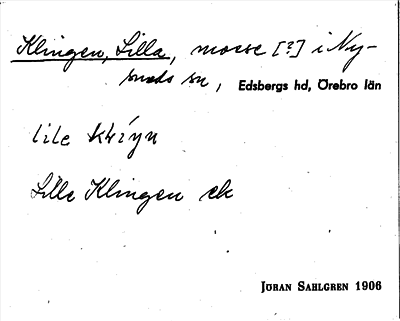 Klingen, Lilla, mosse [?] i Ny-
sunds sn, Edsbergs hd, Örebro län
lile
Lille Klingen ek
JÖRAN SAHLGREN 1906